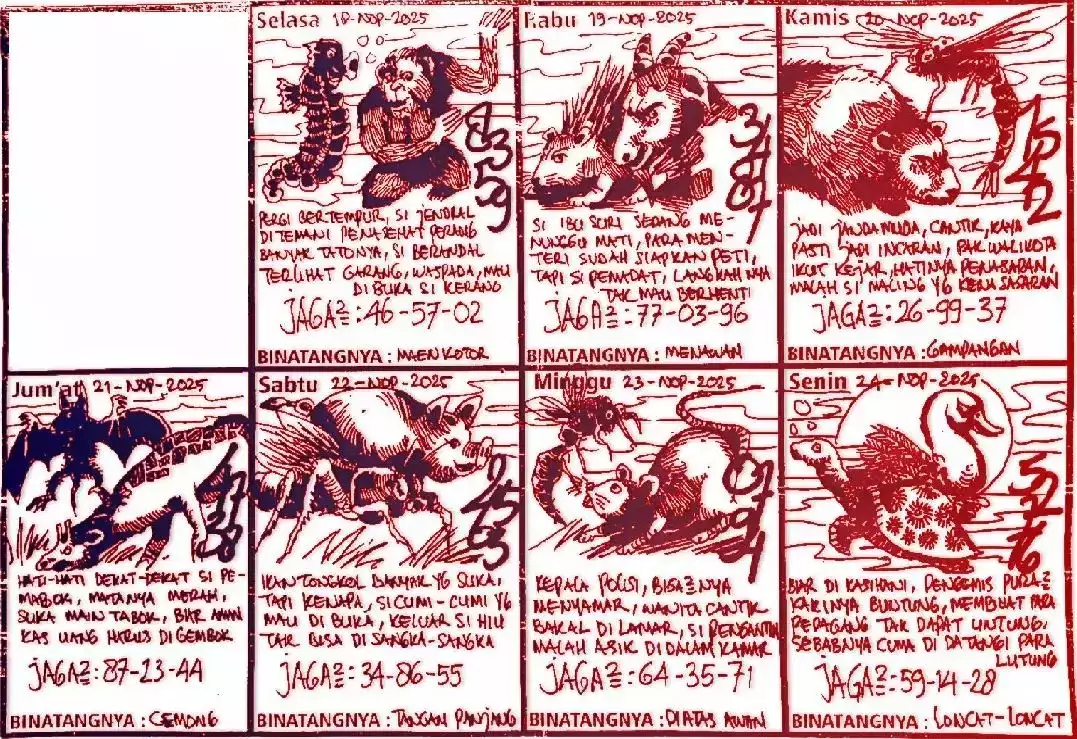 Selasa 18-NOP-2025
8359
PERGI BERTEMPUR, SI JENDRAL
DITEMANI PENASEHAT PERANG
BANYAK TATONYA, SI BERANDAL
TERLIHAT GARANG, WASPADA, MAU
DIBUKA SI KERANG
JAGA2=:46-57-02
BINATANGNYA : MAEN KOTOR
Rabu 19-NOP-2025
SI IBU SURI SEDANG ME-
NUNGGU MATI, PARA MEN-
TERI SUDAH SIAPKAN PETI,
TAPI SI PEMADAT, LANGKAH NYA
TAK MAU BERHENTI
JAGA2=:77-03-96
BINATANGNYA : MENAWAN
Kamis 20-NOP-2025
JADI JANDA MUDA, CANTIK, KAYA
PASTI JADI INCARAN, PAK WALIKOTA
IKUT KEJAR, HATINYA PENASARAN,
MALAH SI MALING YG KENA SASARAN
JAGA2=:26-99-37
BINATANGNYA : GAMPANGAN
Jum'at 21-NOP-2025
HATI-HATI DEKAT-DEKAT SI PE-
MABOK, MATANYA MERAH,
SUKA MAIN TABOK, BIAR AMAN
KAS UANG HARUS DI GEMBOK
JAGA2=:87-23-44
BINATANGNYA : CEMONG
Sabtu 22-NOP-2025
IKAN TONGKOL BANYAK YG SUKA,
TAPI KENAPA, SI CUMI-CUMI YG
MAU DI BUKA, KELUAR SI HIU
TAK BISA DI SANGKA-SANGKA
JAGA2=:34-86-55
BINATANGNYA : TANGAN PANJANG
Minggu 23-NOP-2025
KEPALA POLISI, BISA2=NYA
MENYAMAR, WANITA CANTIK
BAKAL DI LAMAR, SI PENGANTIN
MALAH ASIK DI DALAM KAMAR
JAGA2=:64-35-71
BINATANGNYA : DIATAS AWAN
Senin 24-NOP-2025
BIAR DI KASIHANI, PENGEMIS PURA2=
KAKINYA BUNTUNG, MEMBUAT PARA
PEDAGANG TAK DAPAT UNTUNG,
SEBABNYA CUMA DI DATANGI PARA
LUTUNG
JAGA2=:59-14-28
BINATANGNYA : LONCAT-LONCAT